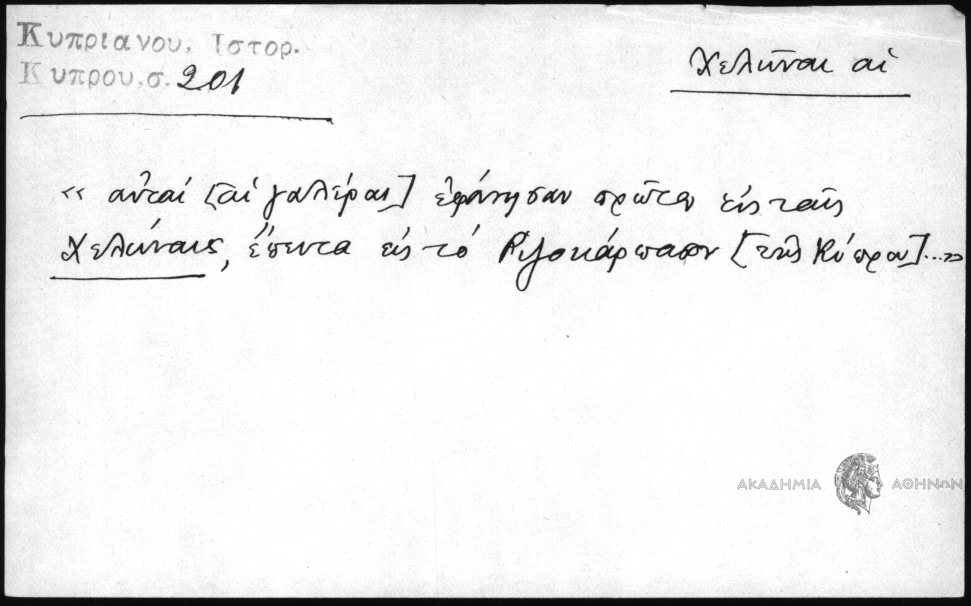 Κυπριανου, Ιστορ.
Κυπρου, σ. 201
Χελῶναι αἱ
« αὗται [αἱ γαλέραι] ἐφάνησαν πρῶτον εἰς ταῖς
Χελώναις, ἔπειτα εἰς τὸ Ριζοκάρπασον [τῆς Κύπρου]...»
ΑΚΑΔΗΜΙΑ ΑΘΗΝΩΝ